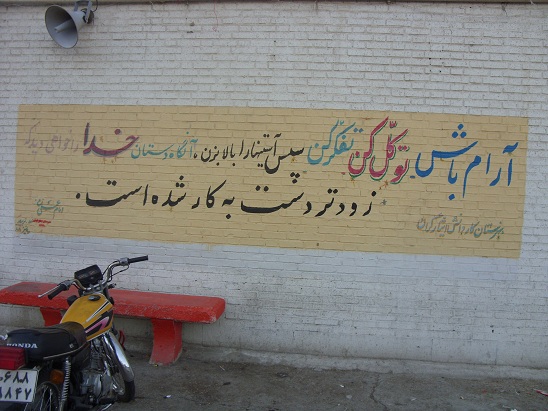 آرام باش توکّل کن تفکر کن سپس آستینها را بالا بزن، آنگاه دستان خدا را خواهی دید که
زودتر دست به کار شده است.
هنرستان کاردانش ایثارگران
HONDA
۶۸۸
۸۴۷